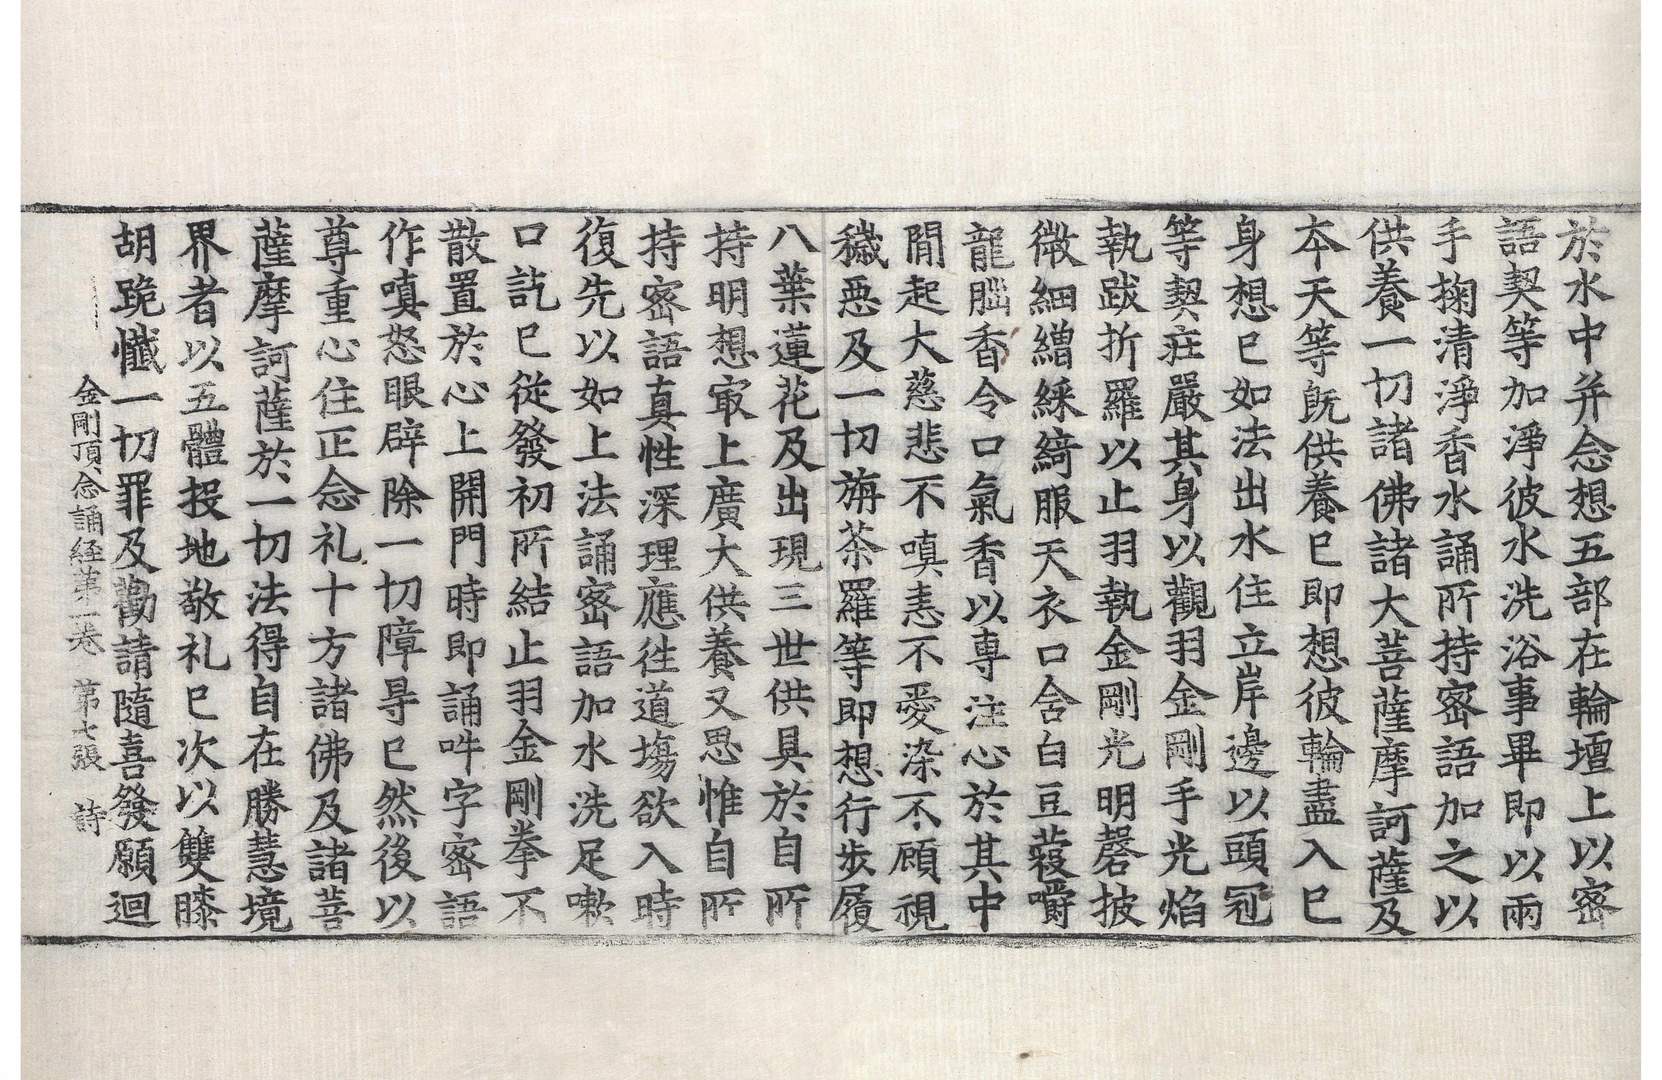 於水中并念想五部在輪壇上以密
語契等加淨彼水洗浴事畢即以兩
手掬清淨香水誦所持密語加之以
供養一切諸佛諸大菩薩摩訶薩及
本天等旣供養已即想彼輪盡入已
身想已如法出水住立岸邊以頭冠
等契莊嚴其身以觀羽金剛手光焰
執跋折羅以止羽執金剛光明磬披
微細繒綵綺服天衣口含白豆蔻嚼
龍腦香令口氣香以專注心於其中
閒起大慈悲不嗔恚不愛染不顧視
穢惡及一切旃荼羅等即想行步履
八葉蓮花及出現三世供具於自所
持明想冣上廣大供養又思惟自所
持密語真性深理應徃道塲欲入時
復先以如上法誦密語加水洗足嗽
口訖已從發初所結止羽金剛拳不
散置於心上開門時即誦吽字密語
作嗔怒眼辟除一切障㝵已然後以
尊重心住正念礼十方諸佛及諸菩
薩摩訶薩於一切法得自在勝慧境
界者以五體投地敬礼已次以雙膝
胡跪懺一切罪及勸請隨喜發願迴
金剛頂念誦経第一卷 第七張 詩